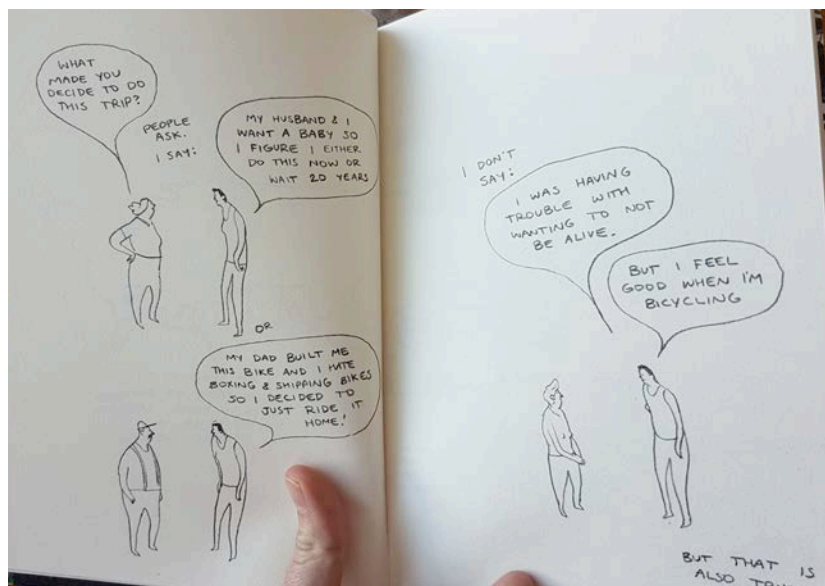 WHAT
MADE YOU
DECIDE TO DO
THIS TRIP?
PEOPLE
ASK.
I SAY:
MY HUSBAND & I
WANT A BABY SO
I FIGURE I EITHER
DO THIS NOW OR
WAIT 20 YEARS
OR
MY DAD BUILT ME
THIS BIKE AND I HATE
BOXING & SHIPPING BIKES
SO I DECIDED TO
JUST RIDE IT
HOME!
I DON'T
SAY:
I WAS HAVING
TROUBLE WITH
WANTING TO NOT
BE ALIVE.
BUT I FEEL
GOOD WHEN I'M
BICYCLING
BUT THAT IS
ALSO